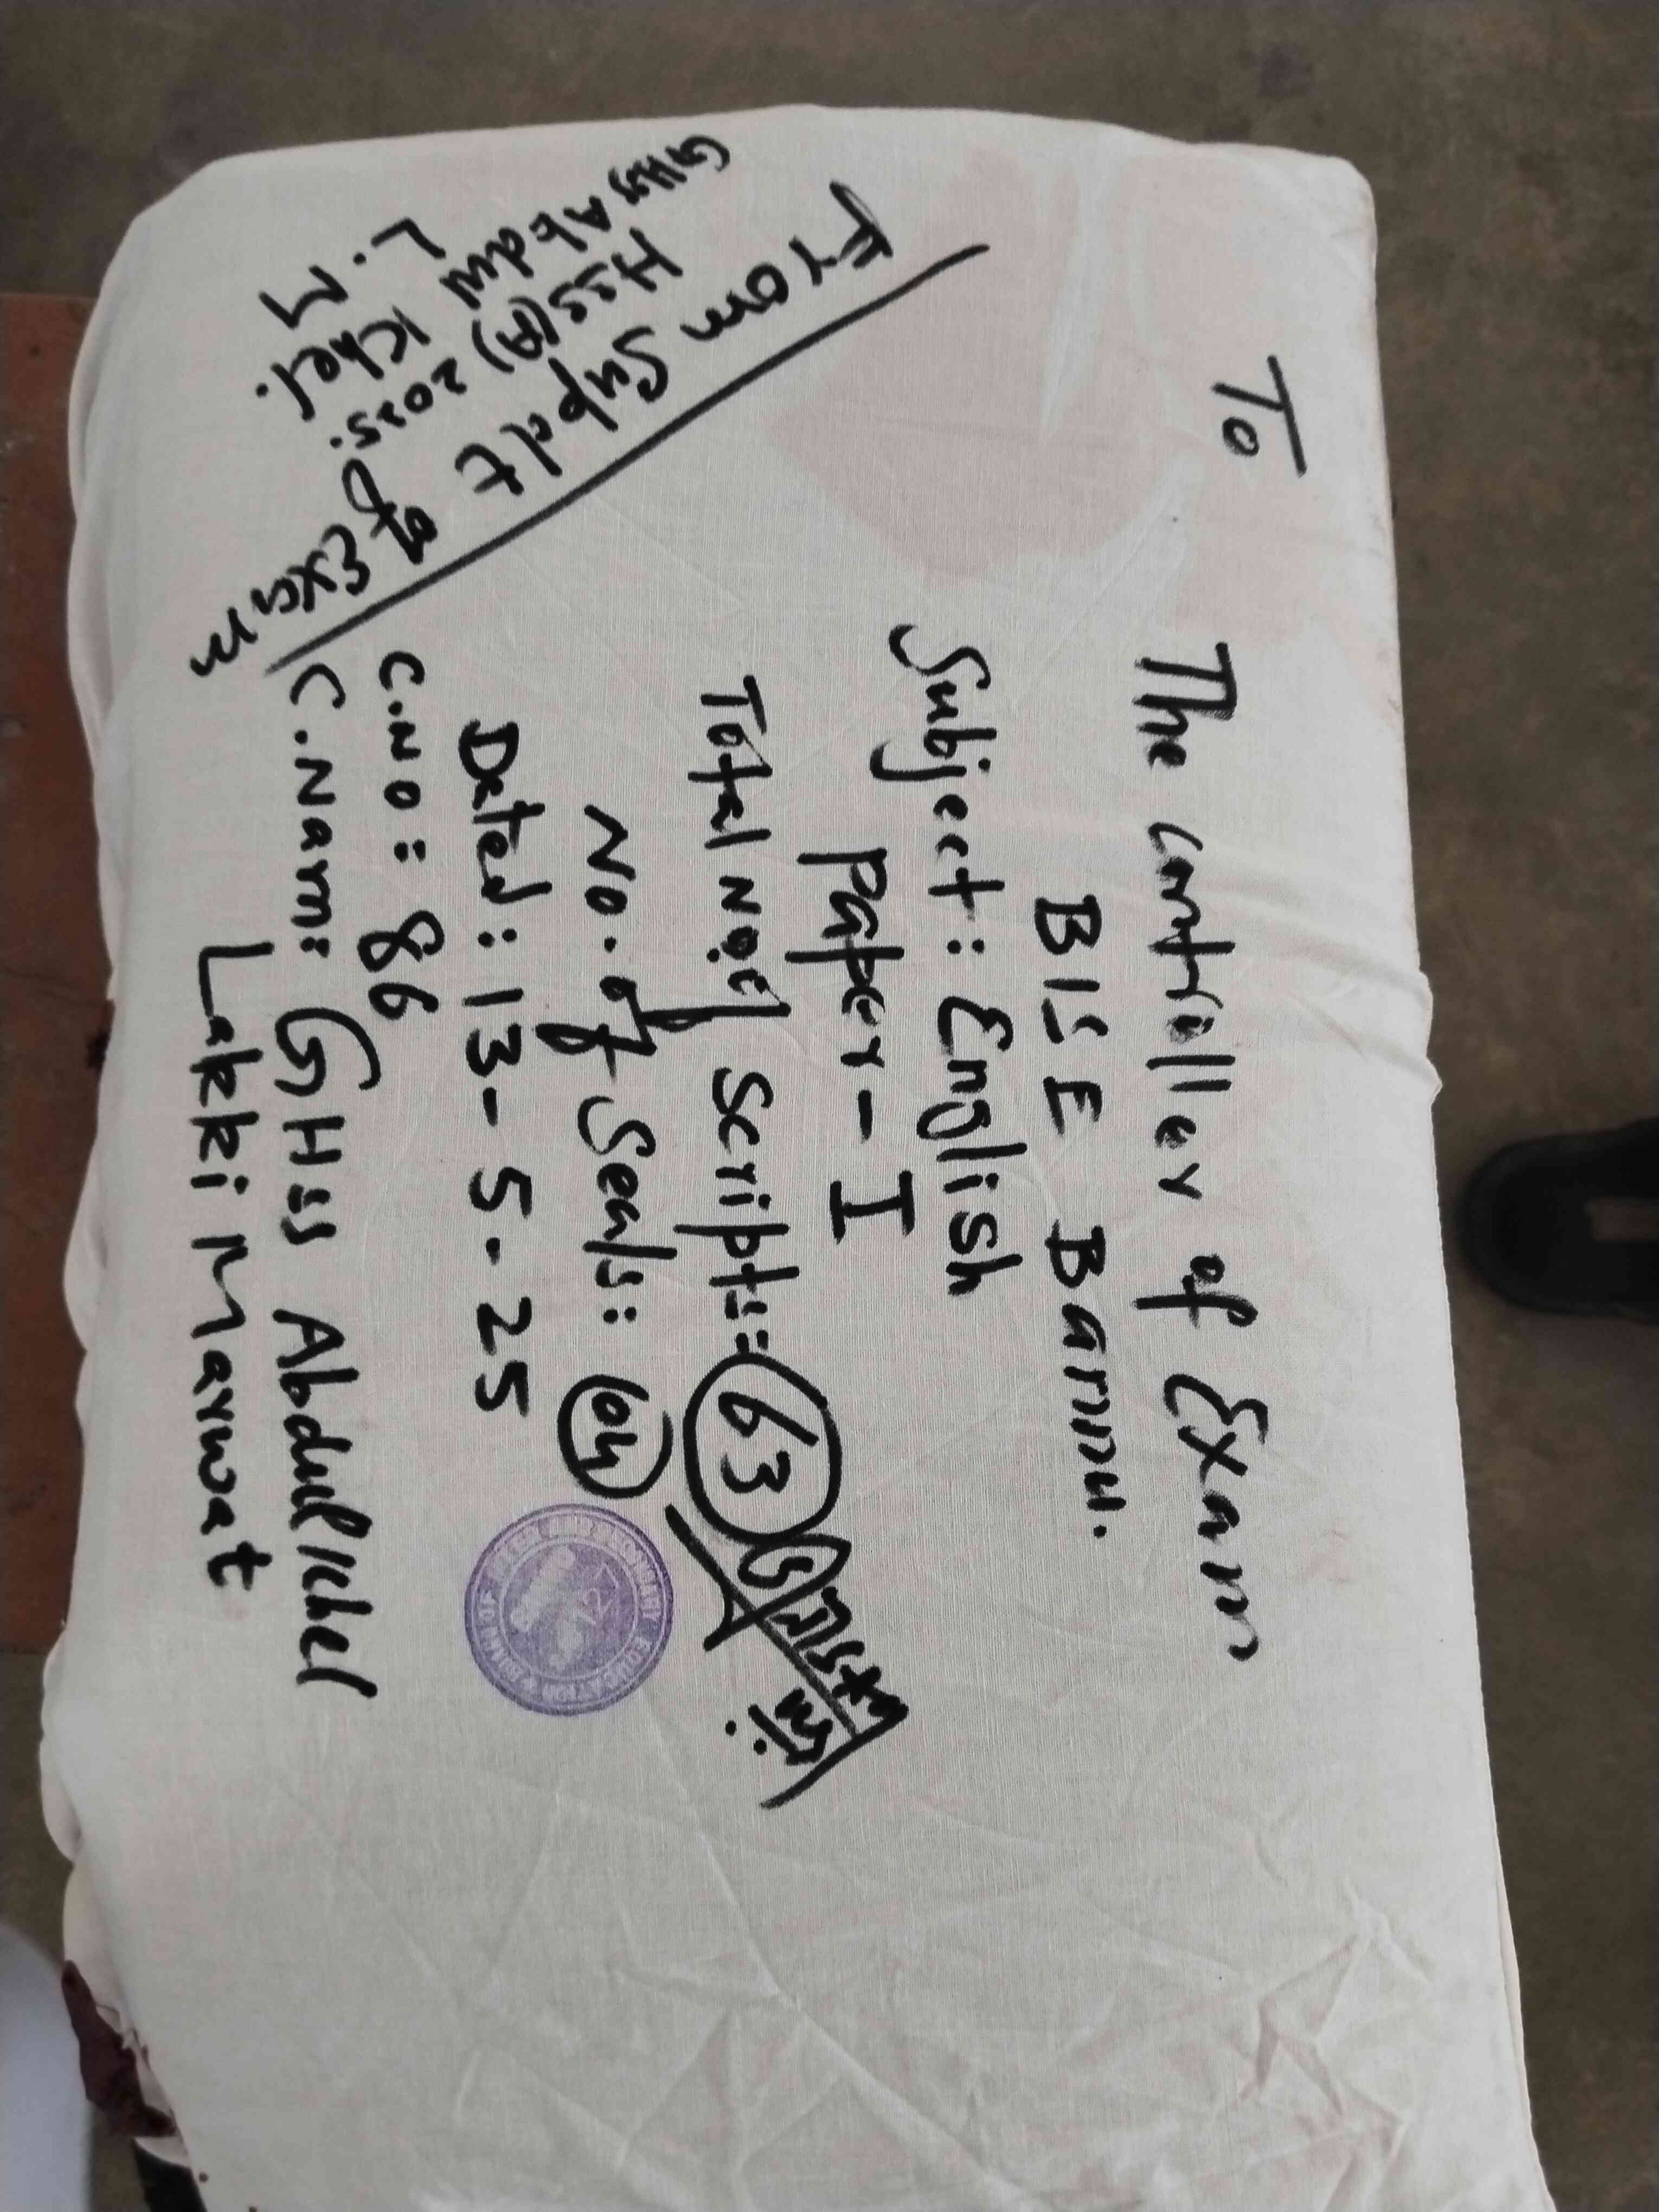 To
The controller of Exam
BISE Bannu.
Subject: English
Paper - I
Total No of Scripts: 63
No. of Seals: 04
Dated: 13-5-25
C.No: 86
C.Nam: GHSS Abdul Khel
Lakki Marwat
From Supdt of Exam
HSS(A) 2025.
GHSS Abdul Khel.
L.M